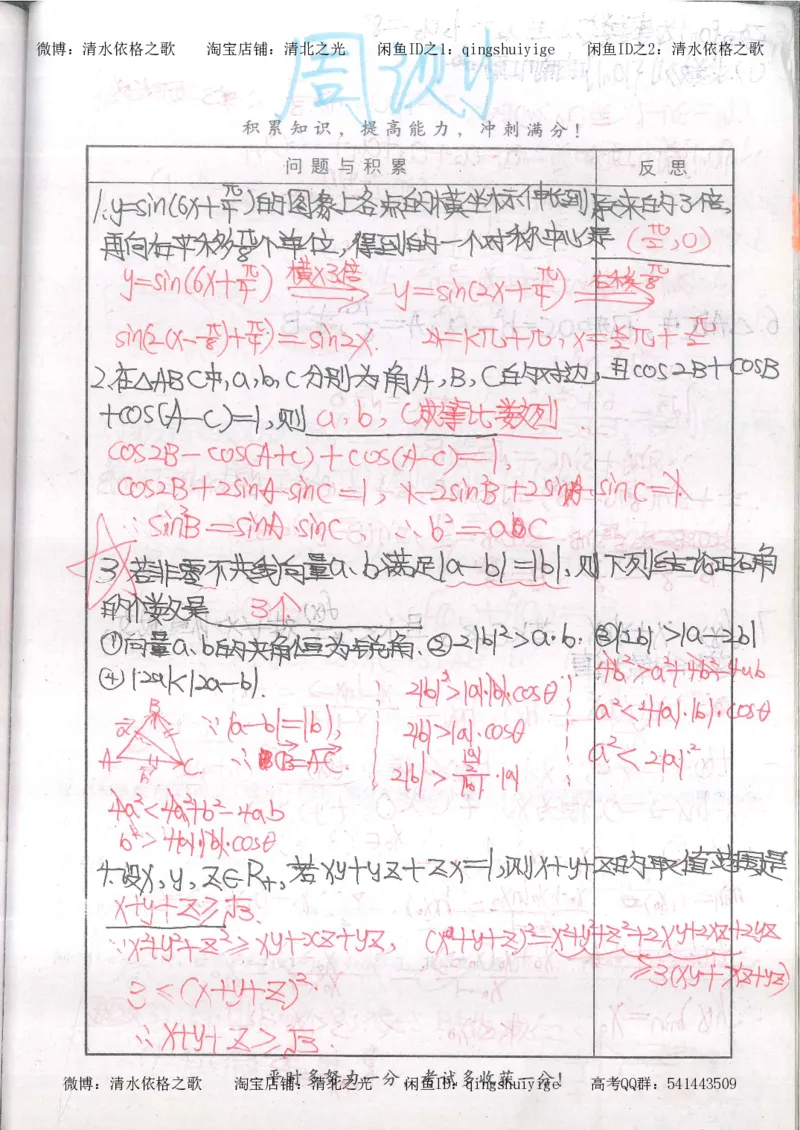 微博：清水依格之歌 淘宝店铺：清北之光 闲鱼ID之1：qingshuiyige 闲鱼ID之2：清水依格之歌
周测
积累知识，提高能力，冲刺满分！
问题与积累 反思
1.y=sin(6x+π/4)的图象上各点的横坐标伸长到原来的3倍，
再向右平移π/8个单位，得到的一个对称中心是 (π/2,0)
y=sin(6x+π/4) 横x3倍 y=sin(2x+π/4) 右移π/8
sin(2(x-π/8)+π/4)=sin2x. 2x=kπ+π, x=k/2π+π/2
2.在△ABC中,a,b,c分别为角A,B,C的对边,且cos2B+cosB
+cos(A-C)=1,则 a,b,c成等比数列.
cos2B-cos(A+C)+cos(A-C)=1,
cos2B+2sinA·sinC=1, 1-2sin²B+2sinA·sinC=1.
∵sin²B=sinA·sinC ∴b²=a·c
3.若非零不共线向量a、b满足|a-b|=|b|,则下列结论正确
的个数是 3个
①向量a、b的夹角恒为锐角.②2|b|²>a·b.③|2b|>|a-2b|
④|2a|<|2a-b|.
4b²>a²+4b²-4ab
2|b|²>|a|·|b|·cosθ
B
∵|a-b|=|b|,
a²<4|a|·|b|·cosθ
2|b|>|a|·cosθ
A C.
a²<2|a|²
4a²<4a²+b²-4ab
b²>4|a|·|b|·cosθ
4.设x,y,z∈R+,若xy+yz+zx=1,则x+y+z的取值范围是
x+y+z≥√3.
∵x²+y²+z²≥xy+xz+yz, (x+y+z)²=x²+y²+z²+2xy+2xz+2yz
≥3(xy+xz+yz)
3≤(x+y+z)².
∴x+y+z≥√3.
平时多努力一分，考试多收获一分！
微博：清水依格之歌 淘宝店铺：清北之光 闲鱼ID：qingshuiyige 高考QQ群：541443509